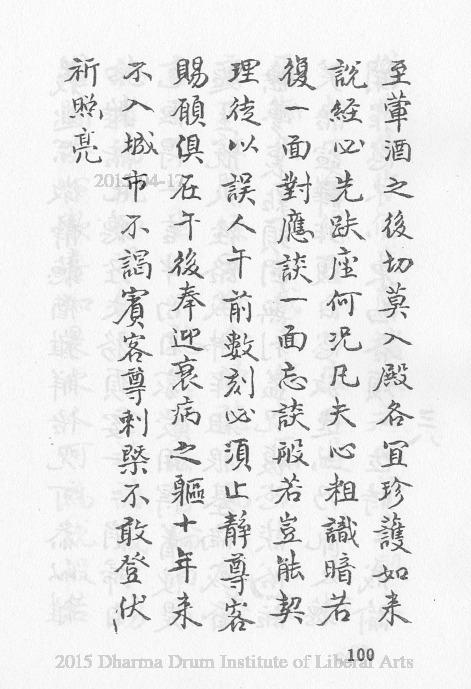 至葷酒之後切莫入殿各宜珍護如来
說經必先趺座何況凡夫心粗識暗若
復一面對應談一面忘談般若豈能契
理徒以誤人午前數刻必須止靜尊客
賜顧俱在午後奉迎衰病之軀十年来
不入城市不謁賓客尊刺槩不敢登伏
祈照亮
2015-04-17
100
2015 Dharma Drum Institute of Liberal Arts